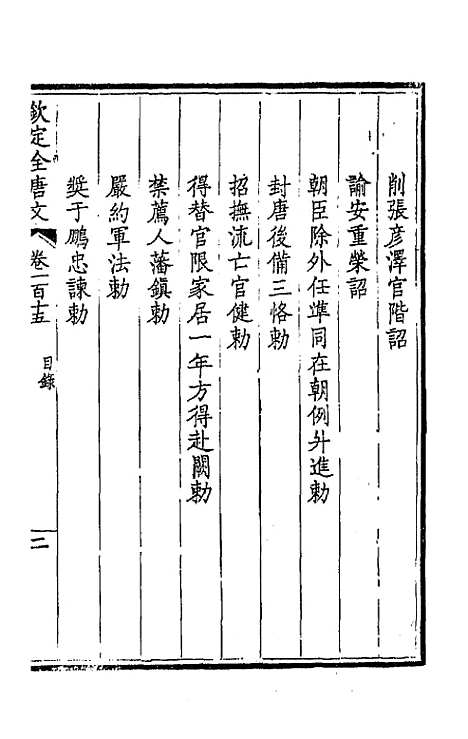 削張彥澤官階詔
諭安重榮詔
朝臣除外任準同在朝例升進勅
封唐後備三恪勅
招撫流亡官健勅
得替官限家居一年方得赴闕勅
禁薦人藩鎮勅
嚴約軍法勅
奬于鵬忠諫勅
欽定全唐文 卷一百十五 目錄 二